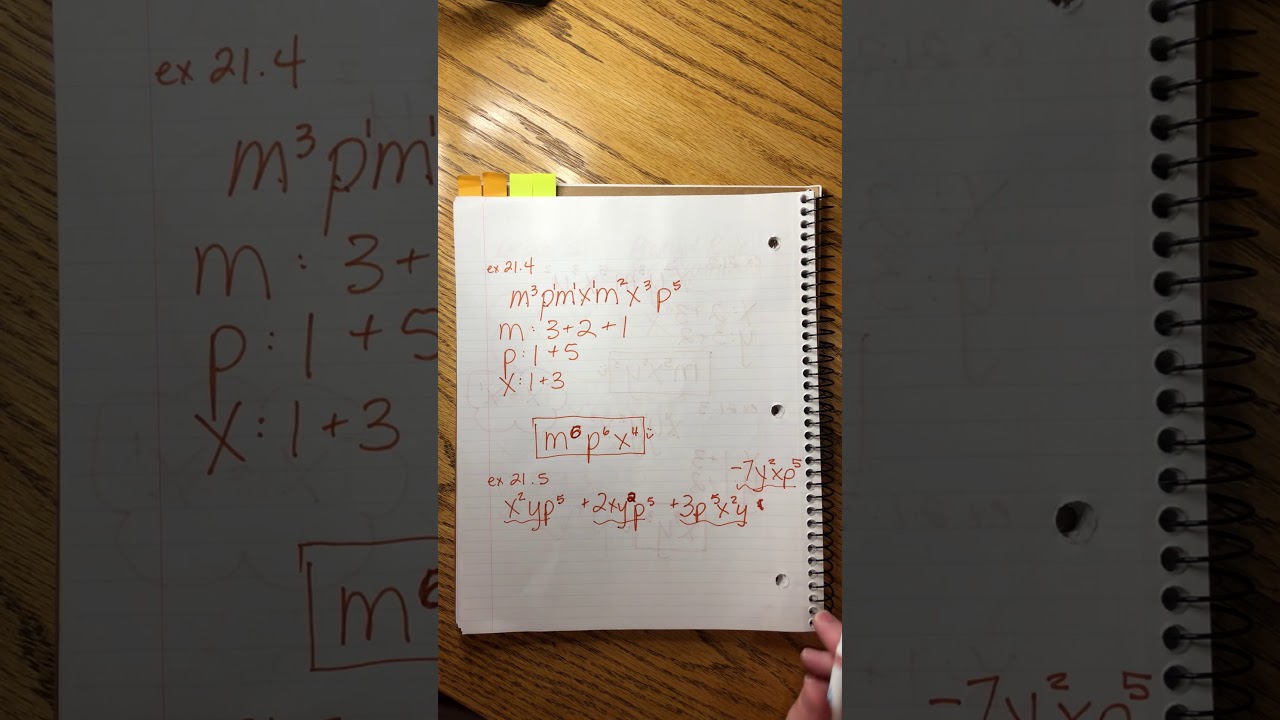 ex 21.4
m³p¹m¹x¹m²x³p⁵
m: 3+2+1
p: 1+5
x: 1+3
m⁶p⁶x⁴
ex 21.5
-7y²xp⁵
x²yp⁵ +2xy²p⁵ +3p⁵x²y